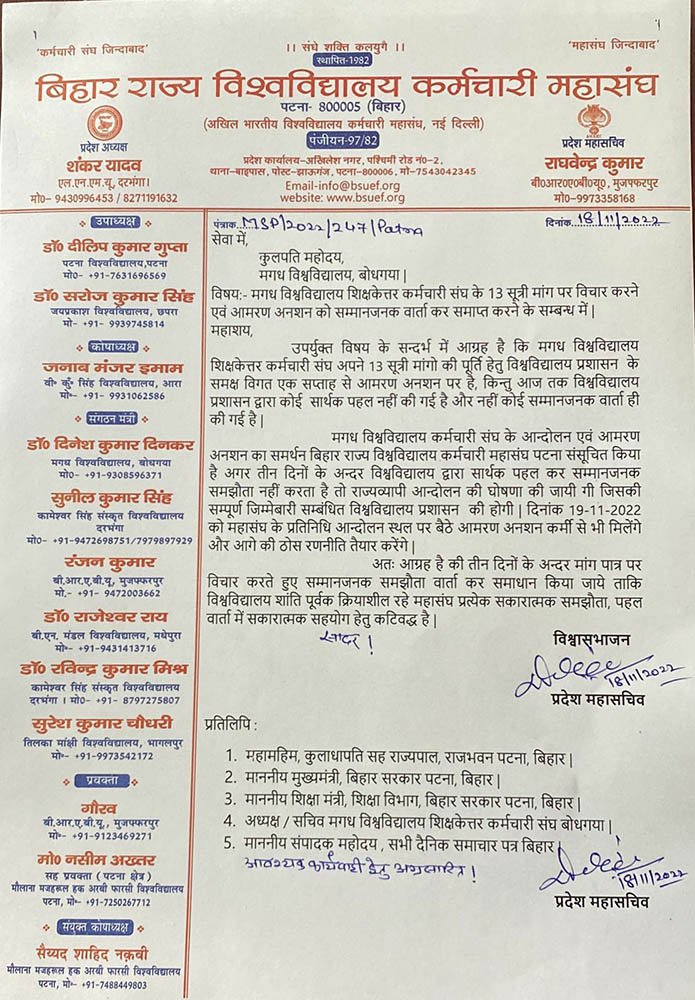 १
१
'कर्मचारी संघ जिन्दाबाद'
।। संघे शक्ति कलयुगे ।।
'महासंघ जिन्दाबाद'
स्थापित-1982
बिहार राज्य विश्वविद्यालय कर्मचारी महासंघ
पटना- 800005 (बिहार)
(अखिल भारतीय विश्वविद्यालय कर्मचारी महासंघ, नई दिल्ली)
पंजीयन-97/82
प्रदेश अध्यक्ष
शंकर यादव
एल.एन.एम.यू, दरभंगा।
मो०- 9430996453 / 8271191632
प्रदेश कार्यालय-अखिलेश नगर, पश्चिमी रोड नं०-2,
थाना-बाइपास, पोस्ट-झाऊगंज, पटना-800006, मो-7543042345
Email-info@bsuef.org
website: www.bsuef.org
प्रदेश महासचिव
राघवेन्द्र कुमार
बी०आर०ए०बी०यू०, मुजफ्फरपुर
मो०-9973358168
उपाध्यक्ष
डॉ० दीलिप कुमार गुप्ता
पटना विश्वविद्यालय,पटना
मो०- +91-7631696569
डॉ० सरोज कुमार सिंह
जयप्रकाश विश्वविद्यालय, छपरा
मो०- +91- 9939745814
कोषाध्यक्ष
जनाब मंजर इमाम
वी० कुँ० सिंह विश्वविद्यालय, आरा
मो०- +91- 9931062586
संगठन मंत्री
डॉ० दिनेश कुमार दिनकर
मगध विश्वविद्यालय, बोधगया
मो०- +91-9308596371
सुनील कुमार सिंह
कामेश्वर सिंह संस्कृत विश्वविद्यालय
दरभंगा
मो०- +91-9472698751/7979897929
रंजन कुमार
बी.आर.ए.बी.यू, मुजफ्फरपुर
मो.- +91- 9472003662
डॉ० राजेश्वर राय
बी.एन. मंडल विश्वविद्यालय, मधेपुरा
मो०- +91-9431413716
डॉ० रविन्द्र कुमार मिश्र
कामेश्वर सिंह संस्कृत विश्वविद्यालय
दरभंगा । मो०- +91- 8797275807
सुरेश कुमार चौधरी
तिलका मांक्षी विश्वविद्यालय, भागलपुर
मो०- +91-9973542172
प्रवक्ता
गौरव
बी.आर.ए.बी.यू., मुजफ्फरपुर
मो०- +91-9123469271
मो० नसीम अख्तर
सह प्रवक्ता (पटना क्षेत्र)
मौलाना मजहरूल हक अरबी फारसी विश्वविद्यालय
पटना, मो०- +91-7250267712
संयुक्त कोषाध्यक्ष
सैय्यद शाहिद नक़वी
मौलाना मजहरूल हक अरबी फारसी विश्वविद्यालय
पटना, मो०- +91-7488449803
पंत्राक. MSP/2022/247/Patna
दिनांक. 18/11/2022
सेवा में,
कुलपति महोदय,
मगध विश्वविद्यालय, बोधगया |
विषय:- मगध विश्वविद्यालय शिक्षकेत्तर कर्मचारी संघ के 13 सूत्री मांग पर विचार करने
एवं आमरण अनशन को सम्मानजनक वार्ता कर समाप्त करने के सम्बन्ध में |
महाशय,
उपर्युक्त विषय के सन्दर्भ में आग्रह है कि मगध विश्वविद्यालय
शिक्षकेत्तर कर्मचारी संघ अपने 13 सूत्री मांगो की पूर्ति हेतु विश्वविद्यालय प्रशासन के
समक्ष विगत एक सप्ताह से आमरण अनशन पर है, किन्तु आज तक विश्वविद्यालय
प्रशासन द्वारा कोई सार्थक पहल नहीं की गई है और नहीं कोई सम्मानजनक वार्ता ही
की गई है |
मगध विश्वविद्यालय कर्मचारी संघ के आन्दोलन एवं आमरण
अनशन का समर्थन बिहार राज्य विश्वविद्यालय कर्मचारी महासंघ पटना संसूचित किया
है अगर तीन दिनों के अन्दर विश्वविद्यालय द्वारा सार्थक पहल कर सम्मानजनक
समझौता नहीं करता है तो राज्यव्यापी आन्दोलन की घोषणा की जायी गी जिसकी
सम्पूर्ण जिम्मेबारी सम्बंधित विश्वविद्यालय प्रशासन की होगी | दिनांक 19-11-2022
को महासंघ के प्रतिनिधि आन्दोलन स्थल पर बैठे आमरण अनशन कर्मी से भी मिलेंगे
और आगे की ठोस रणनीति तैयार करेंगे |
अतः आग्रह है की तीन दिनों के अन्दर मांग पात्र पर
विचार करते हुए सम्मानजनक समझौता वार्ता कर समाधान किया जाये ताकि
विश्वविद्यालय शांति पूर्वक क्रियाशील रहे महासंघ प्रत्येक सकारात्मक समझौता, पहल
वार्ता में सकारात्मक सहयोग हेतु कटिवद्ध है |
सादर !
विश्वासुभाजन
18/11/2022
प्रदेश महासचिव
प्रतिलिपि :
1. महामहिम, कुलाधापति सह राज्यपाल, राजभवन पटना, बिहार |
2. माननीय मुख्यमंत्री, बिहार सरकार पटना, बिहार |
3. माननीय शिक्षा मंत्री, शिक्षा विभाग, बिहार सरकार पटना, बिहार |
4. अध्यक्ष / सचिव मगध विश्वविद्यालय शिक्षकेत्तर कर्मचारी संघ बोधगया |
5. माननीय संपादक महोदय , सभी दैनिक समाचार पत्र बिहार |
आवश्यक कार्यवाही हेतु अग्रसारित !
18/11/2022
प्रदेश महासचिव